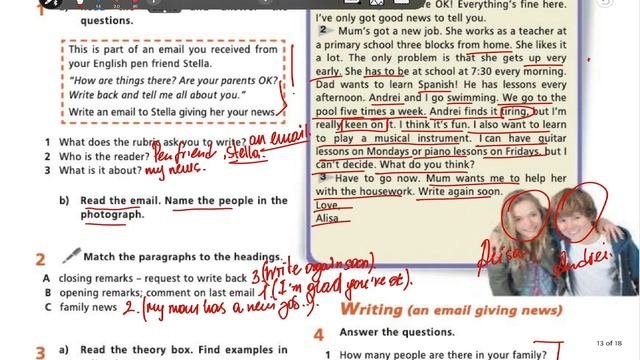 questions.
This is part of an email you received from
your English pen friend Stella.
"How are things there? Are your parents OK?
Write back and tell me all about you."
Write an email to Stella giving her your news.
1 What does the rubric ask you to write? an email.
2 Who is the reader? Penfriend, Stella.
3 What is it about? my news.
b) Read the email. Name the people in the
photograph.
2 Match the paragraphs to the headings.
A closing remarks – request to write back 3. (Write again soon).
B opening remarks; comment on last email 1. (I'm glad you're ok).
C family news 2. (my mom has a new job...).
3 a) Read the theory box. Find examples in
OK! Everything's fine here.
I've only got good news to tell you.
2 Mum's got a new job. She works as a teacher at
a primary school three blocks from home. She likes it
a lot. The only problem is that she gets up very
early. She has to be at school at 7:30 every morning.
Dad wants to learn Spanish! He has lessons every
afternoon. Andrei and I go swimming. We go to the
pool five times a week. Andrei finds it tiring, but I'm
really keen on it. I think it's fun. I also want to learn
to play a musical instrument. I can have guitar
lessons on Mondays or piano lessons on Fridays, but I
can't decide. What do you think?
3 Have to go now. Mum wants me to help her
with the housework. Write again soon.
Love,
Alisa
Alisa
Andrei.
Writing (an email giving news)
4 Answer the questions.
1 How many people are there in your family?
13 of 18